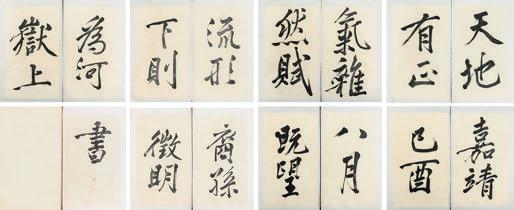 天地
有正
氣雜
然賦
流形
下則
為河
嶽上
嘉靖
己酉
八月
既望
裔孫
徵明
書